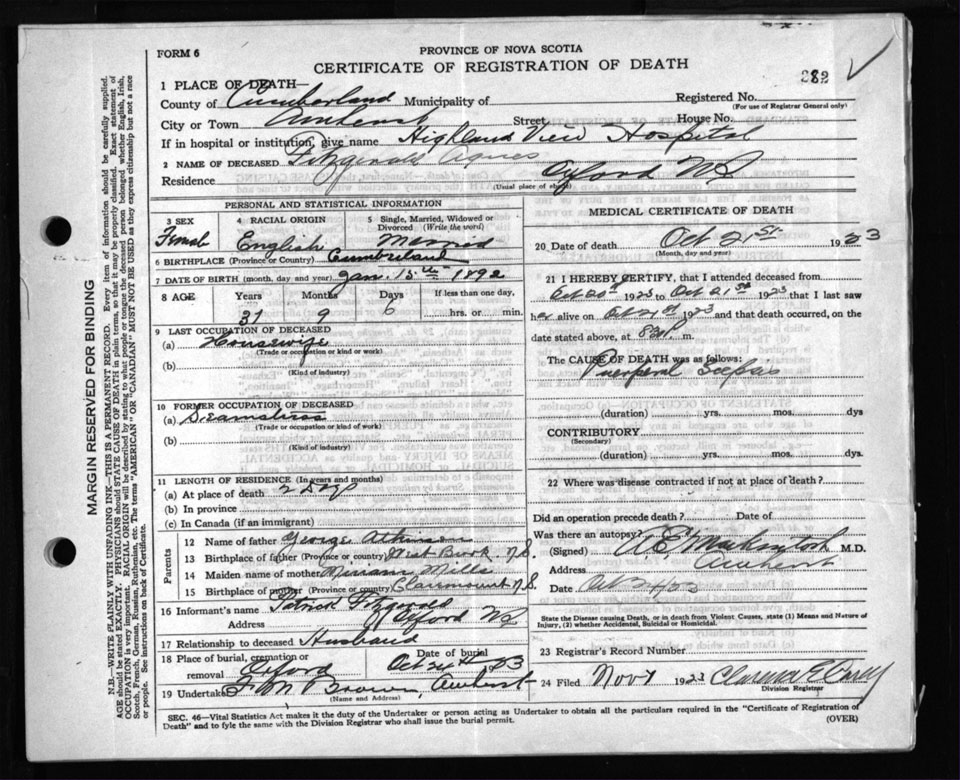 FORM 6
PROVINCE OF NOVA SCOTIA
CERTIFICATE OF REGISTRATION OF DEATH
282
1 PLACE OF DEATH—
County of Cumberland Municipality of
Registered No.
(For use of Registrar General only)
City or Town Amherst Street House No.
If in hospital or institution, give name Highland View Hospital
2 NAME OF DECEASED Fitzgerald Agnes
Residence Oxford N.S.
(Usual place of abode)
PERSONAL AND STATISTICAL INFORMATION
3 SEX
Female
4 RACIAL ORIGIN
English
5 Single, Married, Widowed or Divorced (Write the word)
Married
6 BIRTHPLACE (Province or Country) Cumberland
7 DATE OF BIRTH (month, day and year) Jan. 15th 1892
8 AGE Years Months Days If less than one day,
31 9 6 hrs. or min.
9 LAST OCCUPATION OF DECEASED
(a) Housewife
(Trade or occupation or kind of work)
(b)
(Kind of industry)
10 FORMER OCCUPATION OF DECEASED
(a) Seamstress
(Trade or occupation or kind of work)
(b)
(Kind of industry)
11 LENGTH OF RESIDENCE (In years and months)
(a) At place of death 2 Days
(b) In province
(c) In Canada (if an immigrant)
Parents
12 Name of father George Atkinson
13 Birthplace of father (Province or country) West Brook N.S.
14 Maiden name of mother Miriam Mills
15 Birthplace of mother (Province or country) Claremount N.S.
16 Informant's name Patrick Fitzgerald
Address Oxford N.S.
17 Relationship to deceased Husband
18 Place of burial, cremation or removal Oxford
Date of burial Oct 24th, 23
19 Undertaker F M Brown, Amherst
(Name and Address)
MEDICAL CERTIFICATE OF DEATH
20 Date of death Oct 21st 1923
(Month, day and year)
21 I HEREBY CERTIFY, that I attended deceased from
Oct 20th 1923 to Oct 21st 1923 that I last saw
her alive on Oct 21st 1923 and that death occurred, on the
date stated above, at
The CAUSE OF DEATH was as follows:
Puerperal Scepsis
(duration) yrs. mos. dys
CONTRIBUTORY
(Secondary)
(duration) yrs. mos. dys
22 Where was disease contracted if not at place of death?
Did an operation precede death? Date of
Was there an autopsy?
(Signed) M.D.
Address Amherst
Date Oct 24/23
State the Disease causing Death, or in death from Violent Causes, state (1) Means and Nature of Injury, (2) whether Accidental, Suicidal or Homicidal.
23 Registrar's Record Number
24 Filed Nov 7 1923 Clarence E
Division Registrar
SEC. 46—Vital Statistics Act makes it the duty of the Undertaker or person acting as Undertaker to obtain all the particulars required in the "Certificate of Registration of
Death" and to fyle the same with the Division Registrar who shall issue the burial permit.
(OVER)
MARGIN RESERVED FOR BINDING
N.B.—WRITE PLAINLY WITH UNFADING INK—THIS IS A PERMANENT RECORD. Every item of information should be carefully supplied.
AGE should be stated EXACTLY. PHYSICIANS should STATE CAUSE OF DEATH in plain terms, so that it may be properly classified. Exact statement of
OCCUPATION is very important. RACIAL ORIGIN will be described by stating to what people or tongue the deceased person belonged whether English, Irish,
Scotch, French, German, Russian, Ruthenian, etc. The terms "AMERICAN" OR "CANADIAN" MUST NOT BE USED as they express citizenship but not a race
or people. See instructions on back of Certificate.